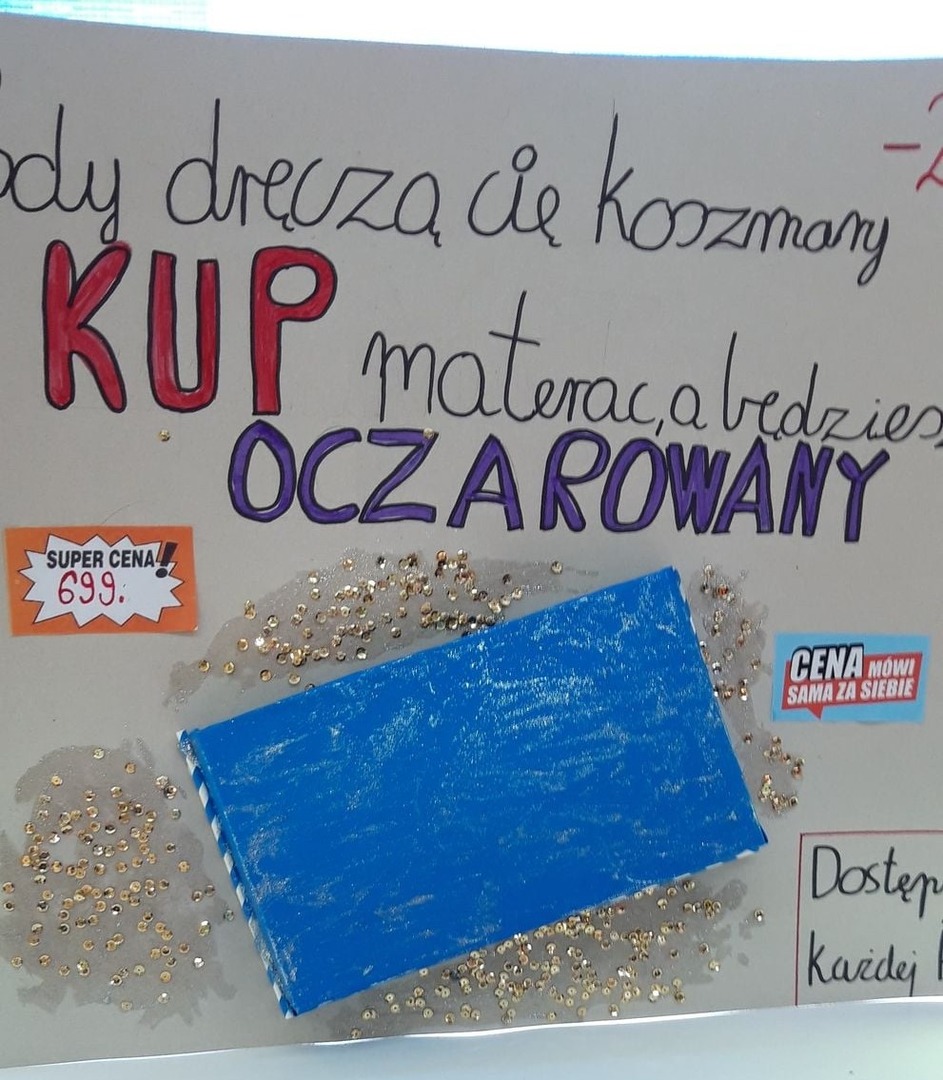 dręczą cię koszmary
KUP materac, a będzies
OCZAROWANY
SUPER CENA!
699.
CENA MÓWI
SAMA ZA SIEBIE
Dostęp
Każdej